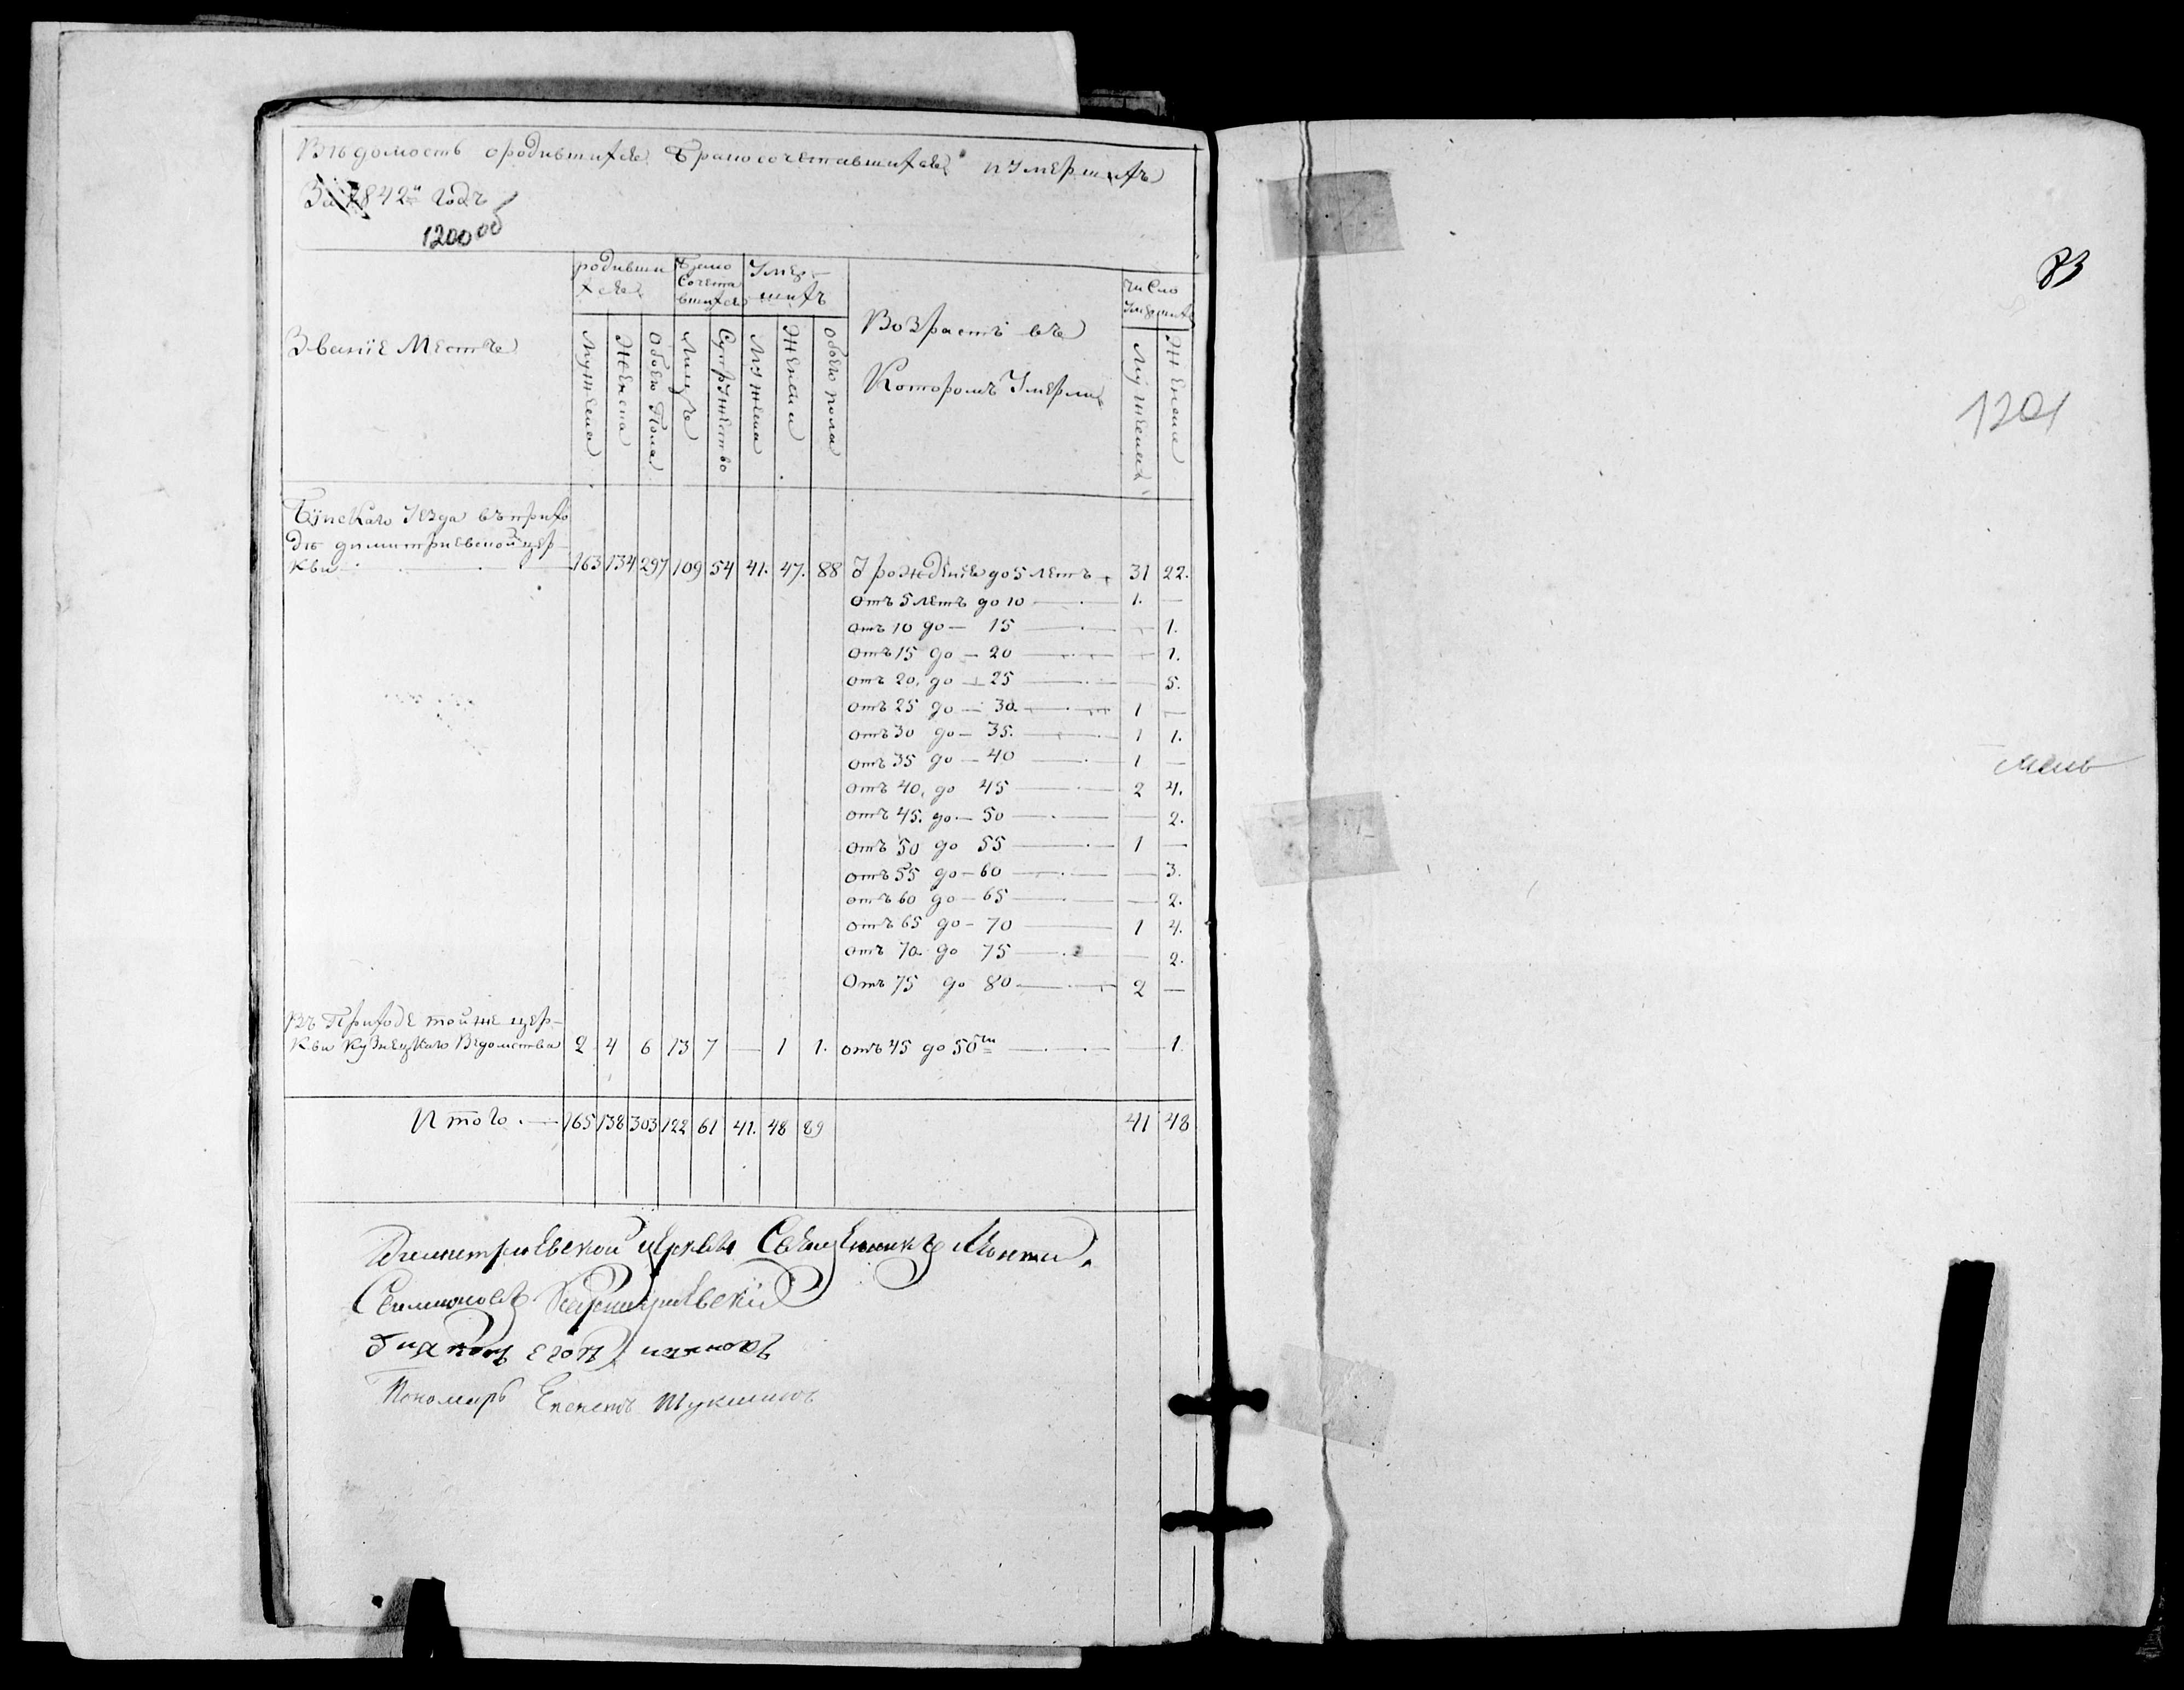 Вѣдомость ородившихся бракосочетавшихся иумершихъ
За 1842й годъ
1200 об
83
1201
Званiе Местъ
родивши
хся
Брако
сочета
вшихся
Умер-
шихъ
Возрастъ въ
Которомъ Умерли
число
Умершихъ
Мужеска
Женска
Обоего Пола
Лицъ
Супружество
Мужеска
Женска
Обоего пола
Мужеска
Женска
Бiйскаго Уезда въприхо
дѣ димитриевской цер-
кви 163 134 297 109 54 41. 47. 88 У рожденiя до 5 летъ 31 22.
отъ 5 летъ до 10 — 1. —
отъ 10 до — 15 — — 1.
отъ 15 до — 20 — — 1.
отъ 20. до — 25 — — 5.
отъ 25 до — 30. — 1 —
отъ 30 до — 35. — 1 1.
отъ 35 до — 40 — 1 —
отъ 40. до 45 — 2 4.
отъ 45. до — 50 — — 2.
отъ 50 до 55 — 1 —
отъ 55 до — 60 — — 3.
отъ 60 до — 65 — — 2.
отъ 65 до — 70 — 1 4.
отъ 70 до 75 — — 2.
отъ 75 до 80 — 2 —
Въ Приходе тойже цер-
кви Кузнецкаго Ведомства 2 4 6 13 7 — 1 1. отъ 45 до 50ти — — 1.
Итого. — 165 138 303 122 61 41. 48 89 41 48
Димитриевской церкви Священникъ
Симионовъ
Дияконъ егоръ
Пономарь Шукшинъ